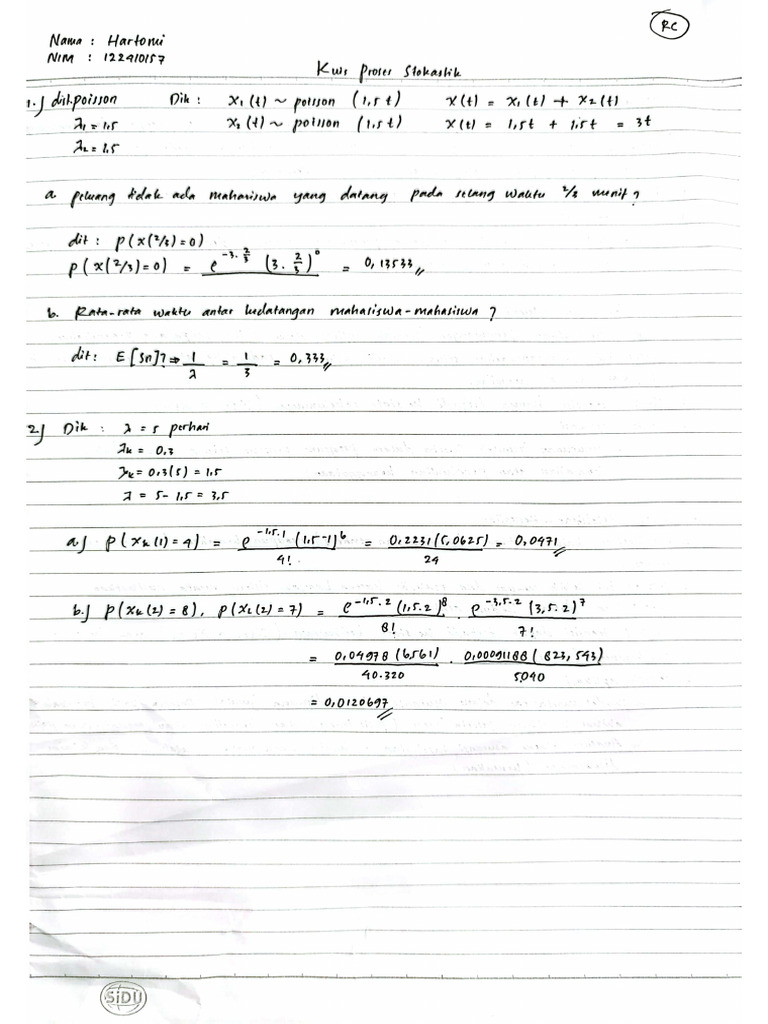 RC
Nama : Hartomi
NIM : 122410157
Kuis Proses Stokastik
1.) dist.poisson Dik : X₁(t) ~ poisson (1,5t) X(t) = X₁(t) + X₂(t)
λ₁ = 1,5 X₂(t) ~ poisson (1,5t) X(t) = 1,5t + 1,5t = 3t
λ₂ = 1,5
a. peluang tidak ada mahasiswa yang datang pada selang waktu 2/3 menit?
dit : p(X(2/3)=0)
p(X(2/3)=0) = e^-3.2/3 (3. 2/3)^0 = 0,13533
b. Rata-rata waktu antar kedatangan mahasiswa-mahasiswa ?
dit : E[Sn]? ⇒ 1/λ = 1/3 = 0,333
2.) Dik : λ = 5 perhari
λk = 0.3
λk = 0.3(5) = 1.5
λ = 5 - 1,5 = 3,5
a.) p(Xk(1) = 4) = e^-1,5.1 (1,5-1)^6 / 4! = 0,2231(5,0625) / 24 = 0,0471
b.) p(Xk(2) = 8). p(XL(2) = 7) = e^-1,5.2 (1,5.2)^8 / 8! . e^-3,5.2 (3,5.2)^7 / 7!
= 0,04978 (6,561) / 40.320 . 0,00091188 (823,543) / 5.040
= 0,0120697
SiDU